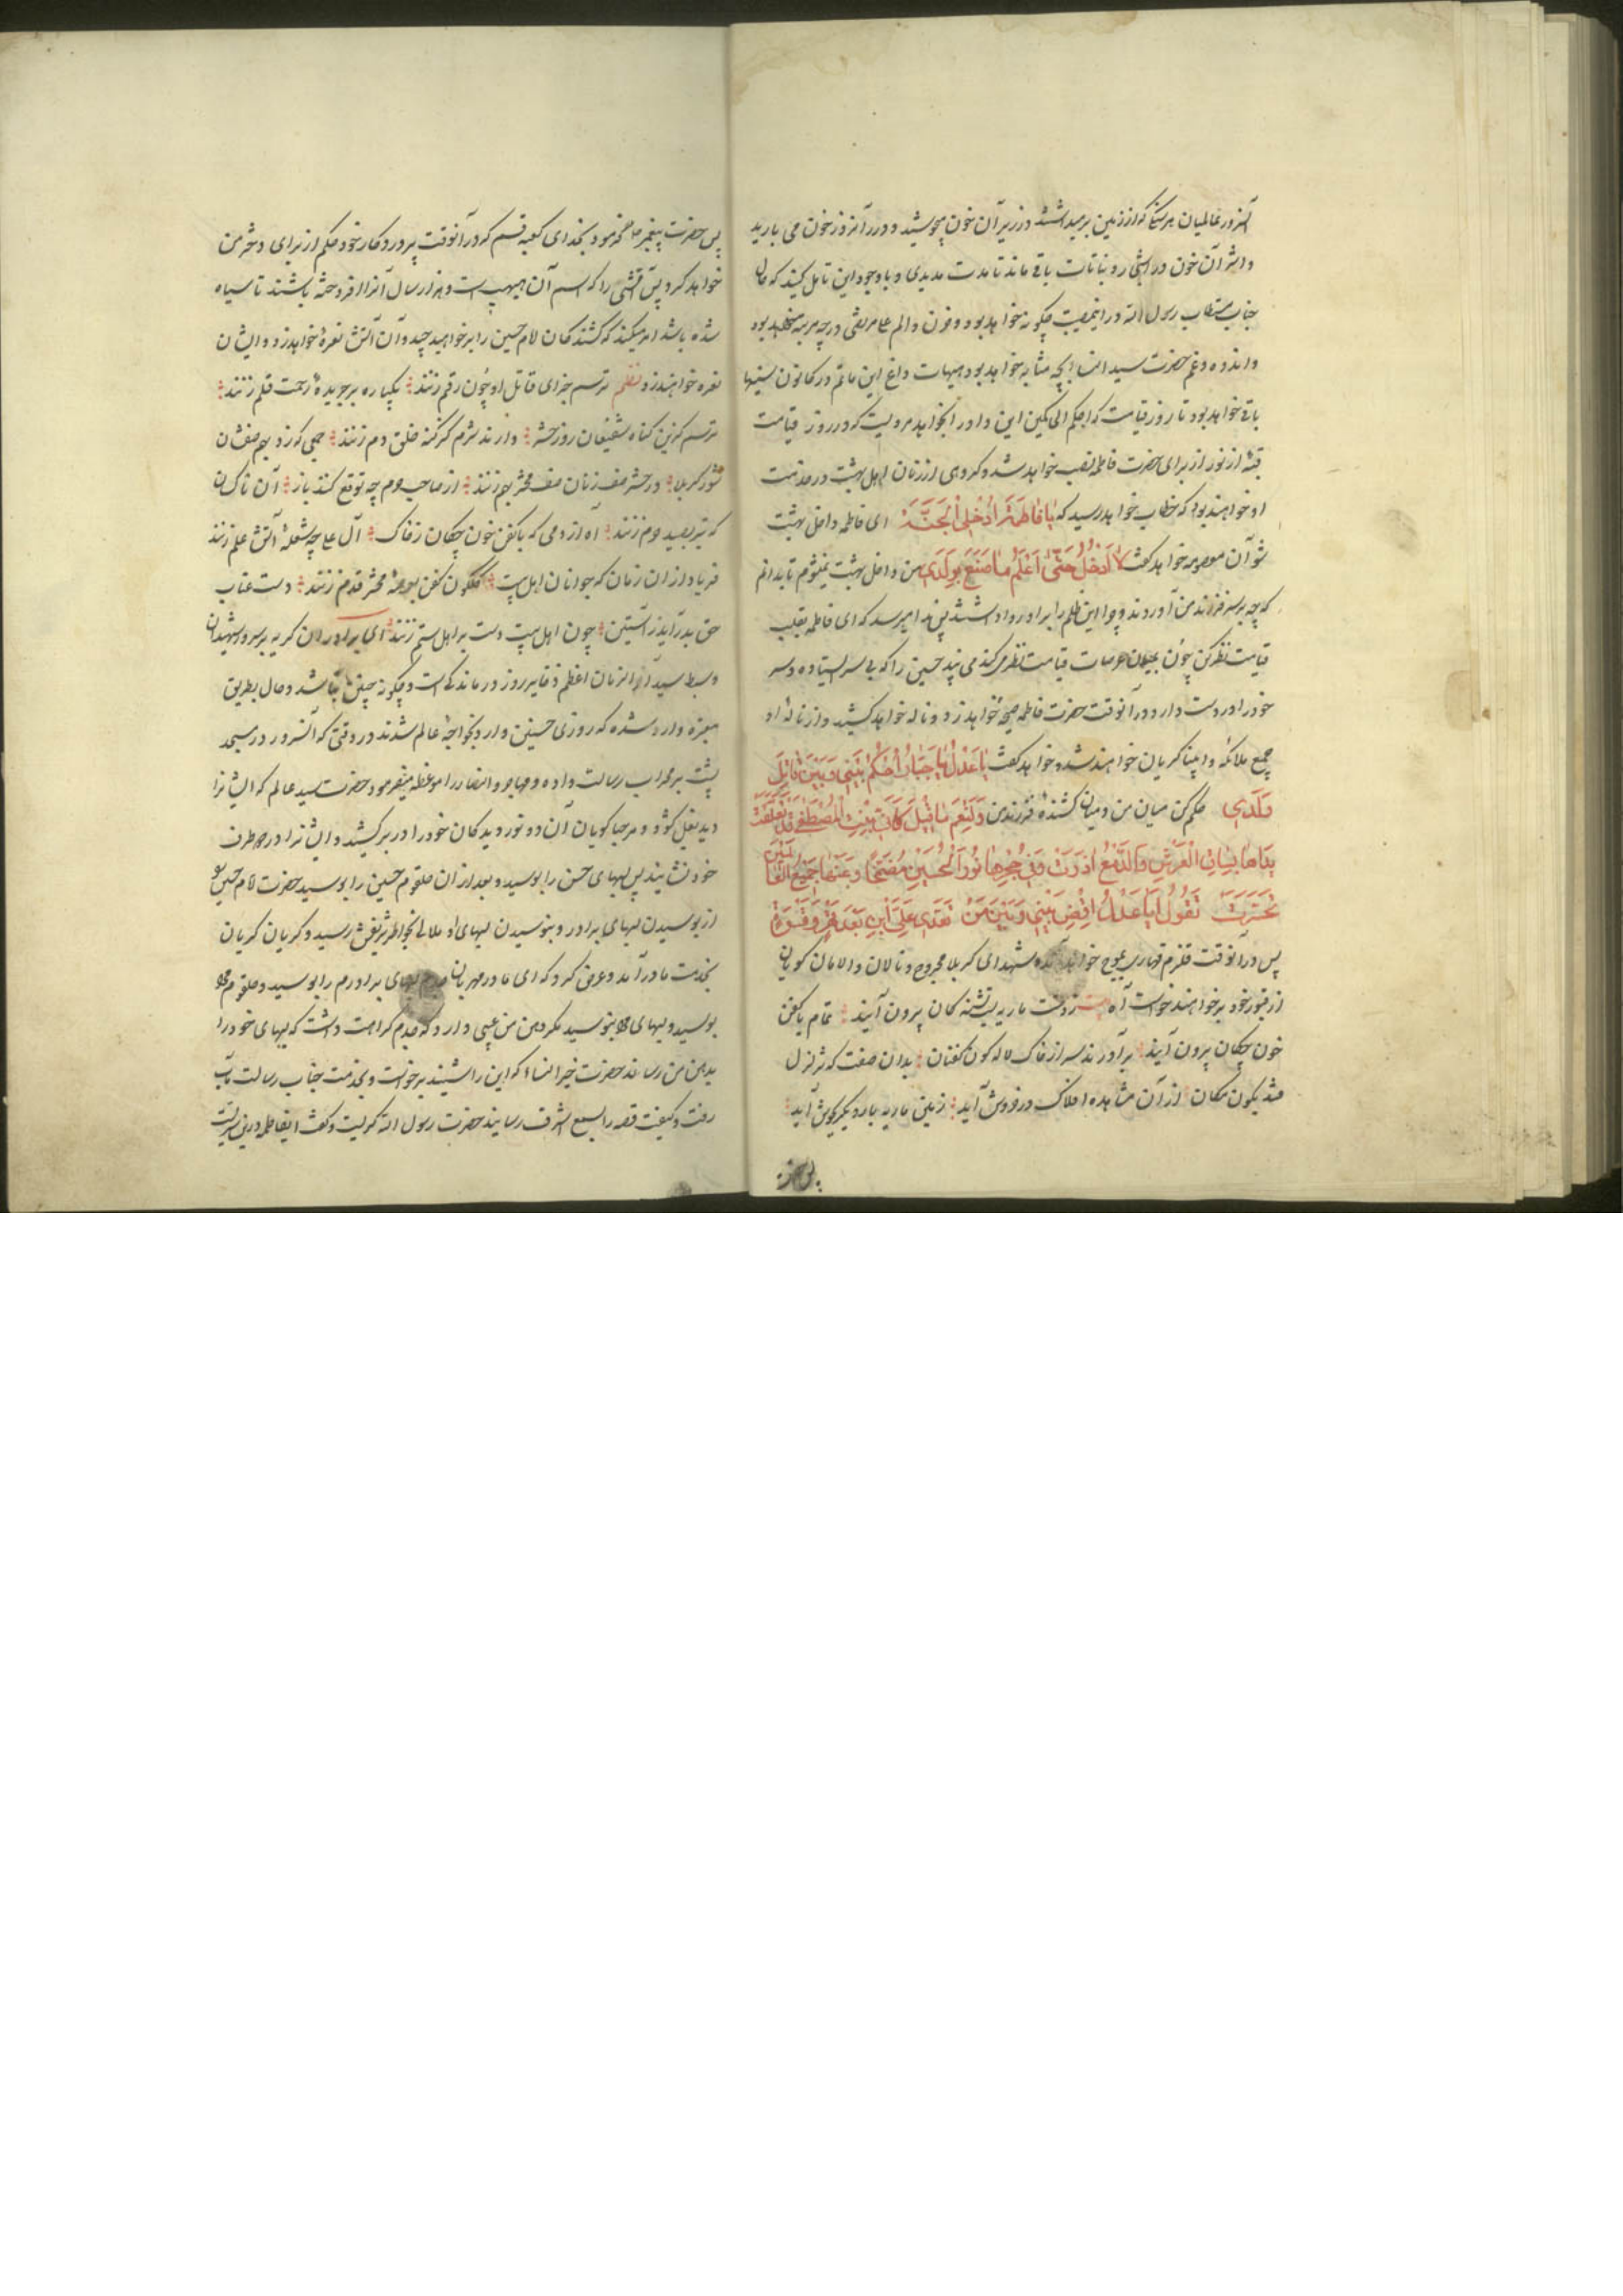 آنروز عالمیان هر سنگی که از زمین برمیداشتند در زیر آن خون میجوشید و در آنروز خون می بارید
و اثر آن خون در اشجار و نباتات باقی ماند تا مدت مدیدی و با وجود این تامل کنید که حال
جناب مستطاب رسول الله در این مصیبت چگونه خواهد بود و حزن و الم علی مرتضی در چه مرتبه خواهد بود
و اندوه و غم حضرت سید النسا بچه مثابه خواهد بود هیهات داغ این ماتم در کانون سینها
باقی خواهد بود تا روز قیامت که احکم الحاکمین این داور انجواهد مرویست که در روز قیامت
قبه از نور از برای حضرت فاطمه نصب خواهد شد و گروهی از زنان اهل بهشت در خدمت
او خواهند بود که خطاب خواهد رسید که یا فاطمة ادخلی الجنة ای فاطمه داخل بهشت
شو آن معصومه خواهد گفت لا ادخل حتی اعلم ما صنع بولدی من داخل بهشت نمیشوم تا بدانم
که چه بر سر فرزند من آوردند و چرا این ظلم را بر او روا داشتند پس ندا میرسد که ای فاطمه بقلب
قیامت نظر کن چون بمیان عرصات قیامت نظر میکند می بیند حسین را که بی سر ایستاده و سر
خود را در دست دارد و در آنوقت حضرت فاطمه صیحه خواهد زد و ناله خواهد کشید و از ناله او
جمیع ملائکه و انبیا گریان خواهند شد و خواهد گفت یا عدل یا جبار احکم بینی و بین قاتل
ولدی حکم کن میان من و میان کشنده فرزند من ولنعم ما قیل کانی ببنت المصطفی قد تعلقت
یداها بساق العرش والدمع اذرت وفی حجرها نور الحسین مضمخا وعنها جمیع العالمین
تحسرت تقول ایا عدل اقض بینی وبین من تعدی علی ابنی بعد قهر وقسوة
پس در آنوقت قلزم قهاری بموج خواهد آمد شهدای کربلا مجروح و نالان و الامان گویان
از قبور خود بر خواهند خواست آه ز دشت ماریه لب تشنه کان بیرون آیند تمام با کفن
خون چکان بیرون آیند برآورند سر از خاک لاله گون کفنان بدان صفت که تزلزل
فتد بکون و مکان از آن مشاهده افلاک در خروش آید زمین ماریه بار دیگر بجوش آید
پس حضرت
پس حضرت پیغمبر فرمود بخدای کعبه قسم که در آنوقت پروردگار خود حکم از برای دختر من
خواهد کرد پس آتشی را که اسم آن هبهب است و هزار سال آنرا افروخته باشند تا سیاه
شده باشد امر میکند که کشندگان امام حسین را بر خواهید چید و آن آتش نعره خواهد زد و ایشان
نعره خواهند زد نظم ترسم جزای قاتل او چون رقم زنند یکباره بر جریده رحمت قلم زنند
ترسم کزین گناه شفیعان روز حشر دارند شرم کز گنه خلق دم زنند جمعی که زد بهم صفشان
شور کربلا در حشر صف زنان صف محشر بهم زنند از صاحب حرم چه توقع کنند باز آن ناکسان
که تیر بصید حرم زنند آه از دمی که با کفن خون چکان ز خاک آل علی چو شعله آتش علم زنند
فریاد از آن زمان که جوانان اهل بیت گلگون کفن بعرصه محشر قدم زنند دست عتاب
حق بدر آید ز آستین چون اهل بیت دست بر اهل ستم زنند ای برادران گریه بر سرور شهیدان
و سبط سید آخر الزمان اعظم ذخایر روز درماندگیست و چگونه چنین نباشد و حال بطریق
معتبره وارد شده که روزی حسنین وارد بخواجه عالم شدند در وقتی که آنسرور در مسجد
پشت بر محراب رسالت داده و مهاجر و انصار را موعظه میفرمود حضرت سید عالم که ایشانرا
دید بغل گشود و مرحبا گویان آن دو نور دیدگان خود را در بر کشید و ایشانرا در دو طرف
خود نشانید پس لبهای حسن را بوسید و بعد از آن حلقوم حسین را بوسید حضرت امام حسین
از بوسیدن لبهای برادر و نبوسیدن لبهای او ملالی بخاطر شریفش رسید و گریان گریان
بخدمت مادر آمد و عرض کرد که ای مادر مهربان جدم لبهای برادرم را بوسید و حلقوم مرا
بوسید و لبهای مرا نبوسید مگر دهن من عیبی دارد که جدم کراهت داشت که لبهای خود را
بدهن من رساند حضرت خیر النسا که این را شنید برخواست و بخدمت جناب رسالت مآب
رفت و کیفیت قصه را بسمع اشرف رسانید حضرت رسول الله گریست و گفت ایفاطمه در این سریست